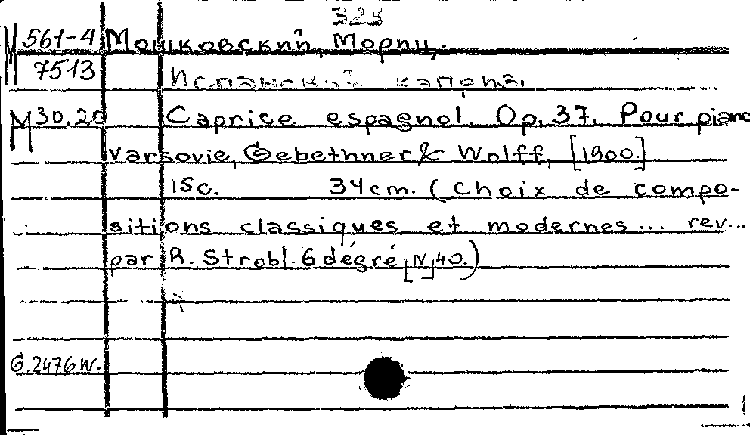 323
М 561-4 Мошковский, Мориц.
7513 Испанский каприз.
М 30.20 Caprice espagnol. Op. 37. Pour piano
Varsovie, Gebethner & Wolff, [1900.]
15c. 34cm. (Choix de compo-
sitions classiques et modernes... rev...
par R. Strobl. 6 dégré [N 40.)
G. 2476 W.